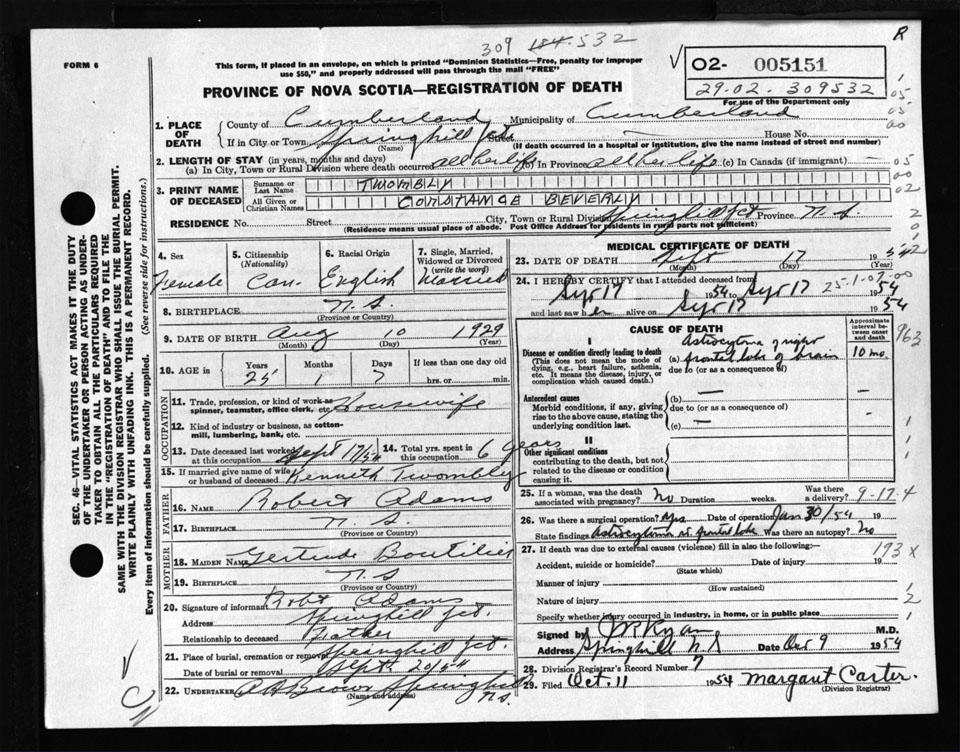 R
309 184.532
FORM 6
This form, if placed in an envelope, on which is printed "Dominion Statistics—Free, penalty for improper
use $50," and properly addressed will pass through the mail "FREE"
O2- 005151
29.02. 309532
For use of the Department only
PROVINCE OF NOVA SCOTIA—REGISTRATION OF DEATH
1. PLACE OF DEATH
County of Cumberland Municipality of Cumberland
If in City or Town Springhill Jct Street House No.
(Name) (If death occurred in a hospital or institution, give the name instead of street and number)
2. LENGTH OF STAY (in years, months and days)
(a) In City, Town or Rural Division where death occurred all her life (b) In Province all her life (c) In Canada (if immigrant) —
3. PRINT NAME OF DECEASED
Surname or Last Name TWOMBLY
All Given or Christian Names CONSTANCE BEVERLY
RESIDENCE No. Street City, Town or Rural Division Springhill Jct Province N.S.
(Residence means usual place of abode. Post Office Address for residents in rural parts not sufficient)
4. Sex
Female
5. Citizenship
(Nationality)
Can.
6. Racial Origin
English
7. Single, Married, Widowed or Divorced
(write the word)
Married
8. BIRTHPLACE N.S.
(Province or Country)
9. DATE OF BIRTH Aug 10 1929
(Month) (Day) (Year)
10. AGE in
Years Months Days If less than one day old
25 1 7 hrs. or min.
OCCUPATION
11. Trade, profession, or kind of work as
spinner, teamster, office clerk, etc. Housewife
12. Kind of industry or business, as cotton-
mill, lumbering, bank, etc.
13. Date deceased last worked
at this occupation Sept 17/54
14. Total yrs. spent in
this occupation 6 years
15. If married give name of wife
or husband of deceased Kenneth Twombly
FATHER
16. Name Robert Adams
17. Birthplace N.S.
(Province or Country)
MOTHER
18. Maiden Name Gertrude Boutilier
19. Birthplace N.S
(Province or Country)
20. Signature of informant Robt Adams
Address Springhill Jct.
Relationship to deceased Father
21. Place of burial, cremation or removal Springhill Jct.
Date of burial or removal Sept. 20/54
22. Undertaker Brown Springhill
N.S.
(Name and address)
MEDICAL CERTIFICATE OF DEATH
23. DATE OF DEATH Sept 17 1954
(Month) (Day) (Year)
24. I HEREBY CERTIFY that I attended deceased from
Sept 17 1954 to Sept 17 1954
and last saw her alive on Sept 17 1954
CAUSE OF DEATH
Approximate interval between onset and death
I
Disease or condition directly leading to death
(This does not mean the mode of dying, e.g., heart failure, asthenia, etc. It means the disease, injury, or complication which caused death.)
Astrocytoma of right
(a) frontal lobe of brain 10 mo.
due to (or as a consequence of)
Antecedent causes
Morbid conditions, if any, giving rise to the above cause, stating the underlying condition last.
(b) —
due to (or as a consequence of)
(c) —
II
Other significant conditions
contributing to the death, but not related to the disease or condition causing it.
963
25. If a woman, was the death
associated with pregnancy? No Duration weeks. Was there a delivery? 9-17-4
26. Was there a surgical operation? Yes Date of operation Jan 30/54 19
State findings Astrocytoma rt. frontal lobe Was there an autopsy? No
27. If death was due to external causes (violence) fill in also the following:—
193X
Accident, suicide or homicide? Date of injury 19
(State which)
Manner of injury
(How sustained)
Nature of injury
Specify whether injury occurred in industry, in home, or in public place
Signed by Ryan M.D.
Address Springhill N.S Date Oct 9 1954
28. Division Registrar's Record Number 7
29. Filed Oct. 11 1954 Margaret Carter.
(Division Registrar)
SEC. 46—VITAL STATISTICS ACT MAKES IT THE DUTY
OF THE UNDERTAKER OR PERSON ACTING AS UNDER-
TAKER TO OBTAIN ALL THE PARTICULARS REQUIRED
IN THE "REGISTRATION OF DEATH" AND TO FILE THE
SAME WITH THE DIVISION REGISTRAR WHO SHALL ISSUE THE BURIAL PERMIT.
WRITE PLAINLY WITH UNFADING INK. THIS IS A PERMANENT RECORD.
Every item of information should be carefully supplied. (See reverse side for instructions.)